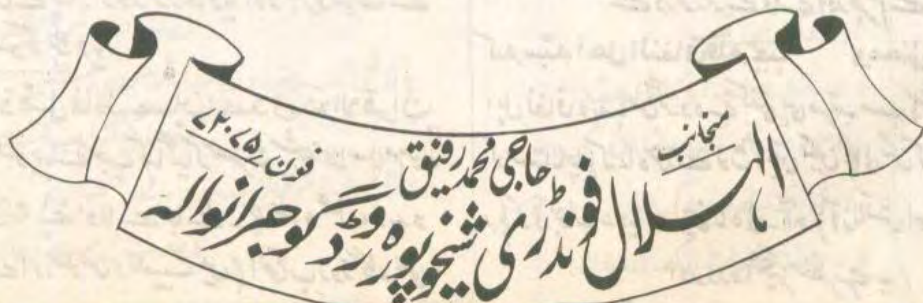 منجانب
حاجی محمد رفیق
فون ۷۲۰۷۵
الہلال فونڈری شیخوپورہ روڈ گوجرانوالہ